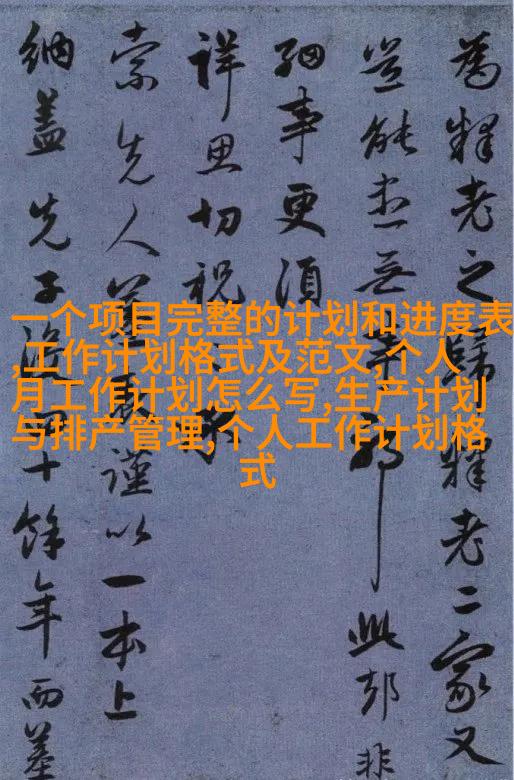 為釋老之歸釋老二家又
豈能無耶此却非
細事更須
詳思切祝
索先人墓表謹以一本上
納蓋先子淪十餘年而墓
一个项目完整的计划和进度表
,工作计划格式及范文,个人
月工作计划怎么写,生产计划
与排产管理,个人工作计划格
式